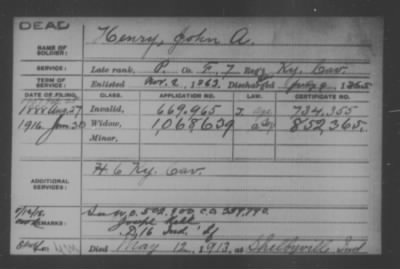 DEAD
NAME OF SOLDIER: Henry, John A.
SERVICE: Late rank, P. Co. F, 7 Reg't Ky. Cav.
TERM OF SERVICE: Enlisted Nov. 2, 1863. Discharged July 9, 1865
DATE OF FILING. CLASS. APPLICATION NO. LAW. CERTIFICATE NO.
1888 Aug 27 Invalid, 669,965 734,355
1916 Jan 30 Widow, 1,068,639 852,365.
Minor,
ADDITIONAL SERVICES: H 6 Ky. Cav.
REMARKS:
D 16 Ind.
Died May 12, 1913, at Shelbyville Ind